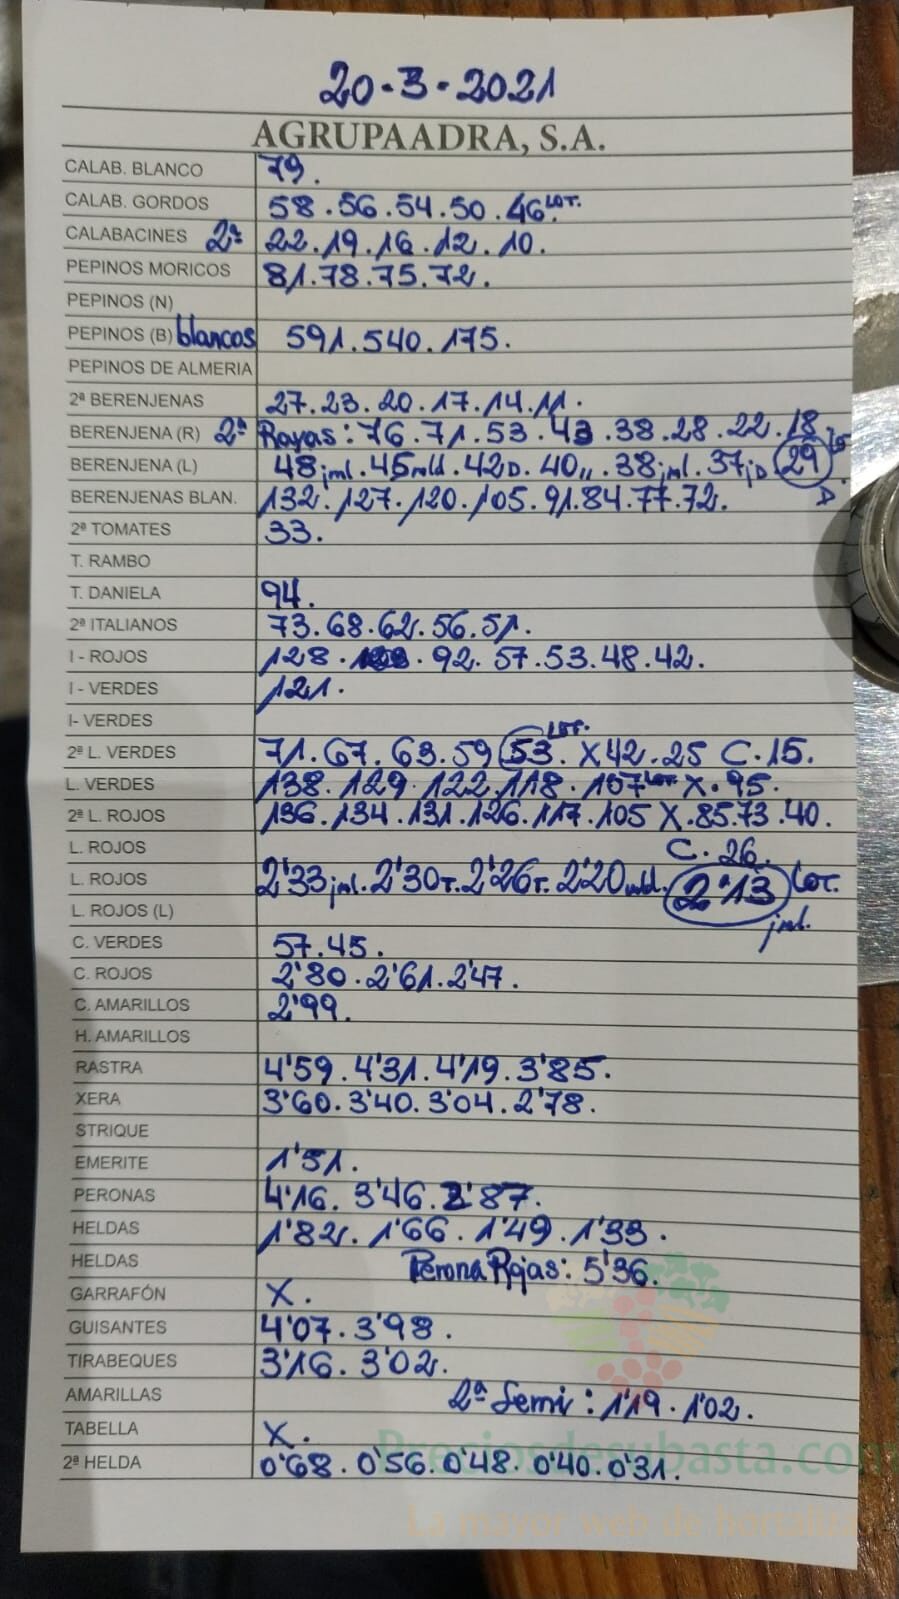 20-3-2021
AGRUPAADRA, S.A.
CALAB. BLANCO 79.
CALAB. GORDOS 58.56.54.50.46 LOT.
CALABACINES 2ª 22.19.16.12.10.
PEPINOS MORICOS 81.78.75.72.
PEPINOS (N)
PEPINOS (B) blancos 591.540.175.
PEPINOS DE ALMERIA
2ª BERENJENAS 27.23.20.17.14.11.
BERENJENA (R) 2ª Rayas: 76.71.53.43.38.28.22.18
BERENJENA (L) 48 jml.45 mld.42 D.40 ,,.38 jml.37 jD 29
D.
BERENJENAS BLAN. 132.127.120.105.91.84.77.72.
2ª TOMATES 33.
T. RAMBO
T. DANIELA 94.
2ª ITALIANOS 73.68.62.56.51.
I - ROJOS 128. . 92.57.53.48.42.
I - VERDES 121.
I- VERDES
2ª L. VERDES 71.67.63.59 53. LOT. X42.25 C.15.
L. VERDES 138.129.122.118.107 LOT. X.95.
2ª L. ROJOS 136.134.131.126.117.105 X.85.73.40.
L. ROJOS C.26.
L. ROJOS 2'33 jml.2'30 T.2'26 T.2'20 mld. 2'13 LOT.
L. ROJOS (L) jml.
C. VERDES 57.45.
C. ROJOS 2'80.2'61.2'47.
C. AMARILLOS 2'99.
H. AMARILLOS
RASTRA 4'59.4'31.4'19.3'85.
XERA 3'60.3'40.3'04.2'78.
STRIQUE
EMERITE 1'51.
PERONAS 4'16. 3'46.2'87.
HELDAS 1'82.1'66.1'49.1'33.
HELDAS Perona Rojas: 5'36.
GARRAFÓN X.
GUISANTES 4'07.3'98.
TIRABEQUES 3'16.3'02.
AMARILLAS 2ª Semi: 1'19.1'02.
TABELLA X.
Preciosdesubasta.com
2ª HELDA 0'68.0'56.0'48.0'40.0'31.
La mayor web de hortaliza